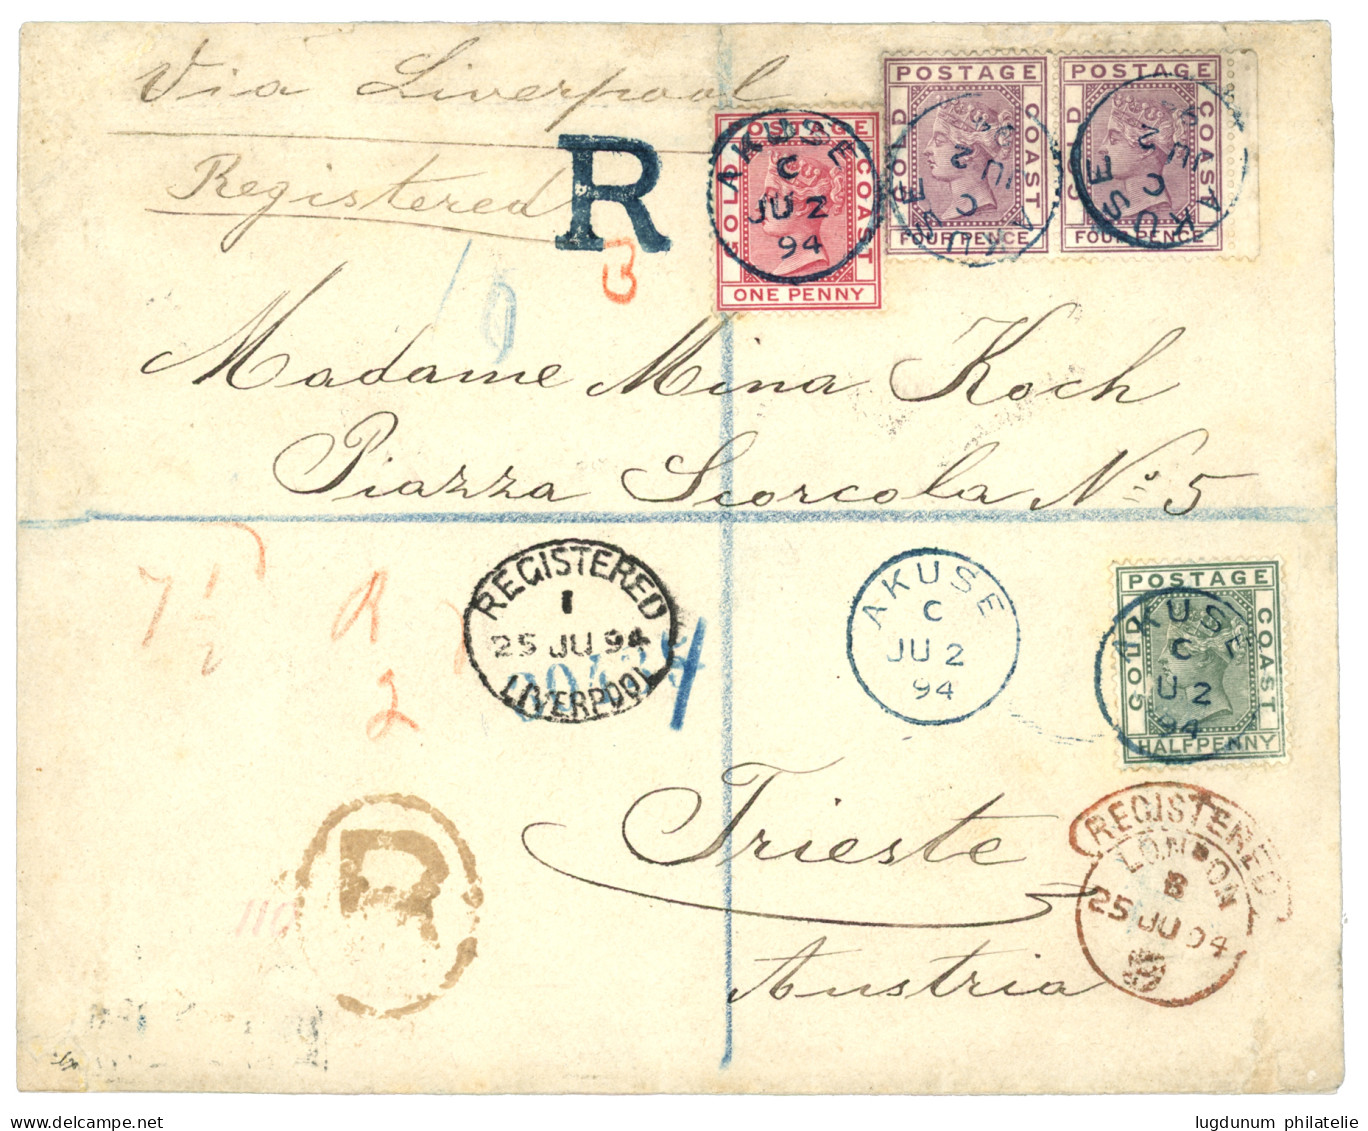 Via Liverpool
Registered
R
B
POSTAGE
GOLD
COAST
ONE PENNY
AKUSE
C
JU 2
94
POSTAGE
GOLD
COAST
FOUR PENCE
AKUSE
C
JU 2
94
POSTAGE
GOLD
COAST
FOUR PENCE
AKUSE
C
JU 2
94
Madame Mina Koch
Piazza Scorcola No 5
7 1/2
R
2
REGISTERED
1
25 JU 94
LIVERPOOL
AKUSE
C
JU 2
94
POSTAGE
GOLD
COAST
HALFPENNY
AKUSE
C
JU 2
94
Trieste
Austria
R
REGISTERED
LONDON
25 JU 94
lugdunum philatelie